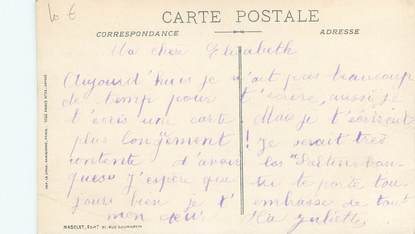 10 €
CARTE POSTALE
CORRESPONDANCE
ADRESSE
Ma cher Elizabeth
Aujourd'hui je n'ait pas beaucoup
de temp pour t'ecrire, aussi je
t'écris une carte Mais je t'écrirait
plus longuement ! Je serait très
contente d'avoir les
que J'espère que te porte tou
jours bien je t' embrasse de tout
mon cœur Ta Juliette